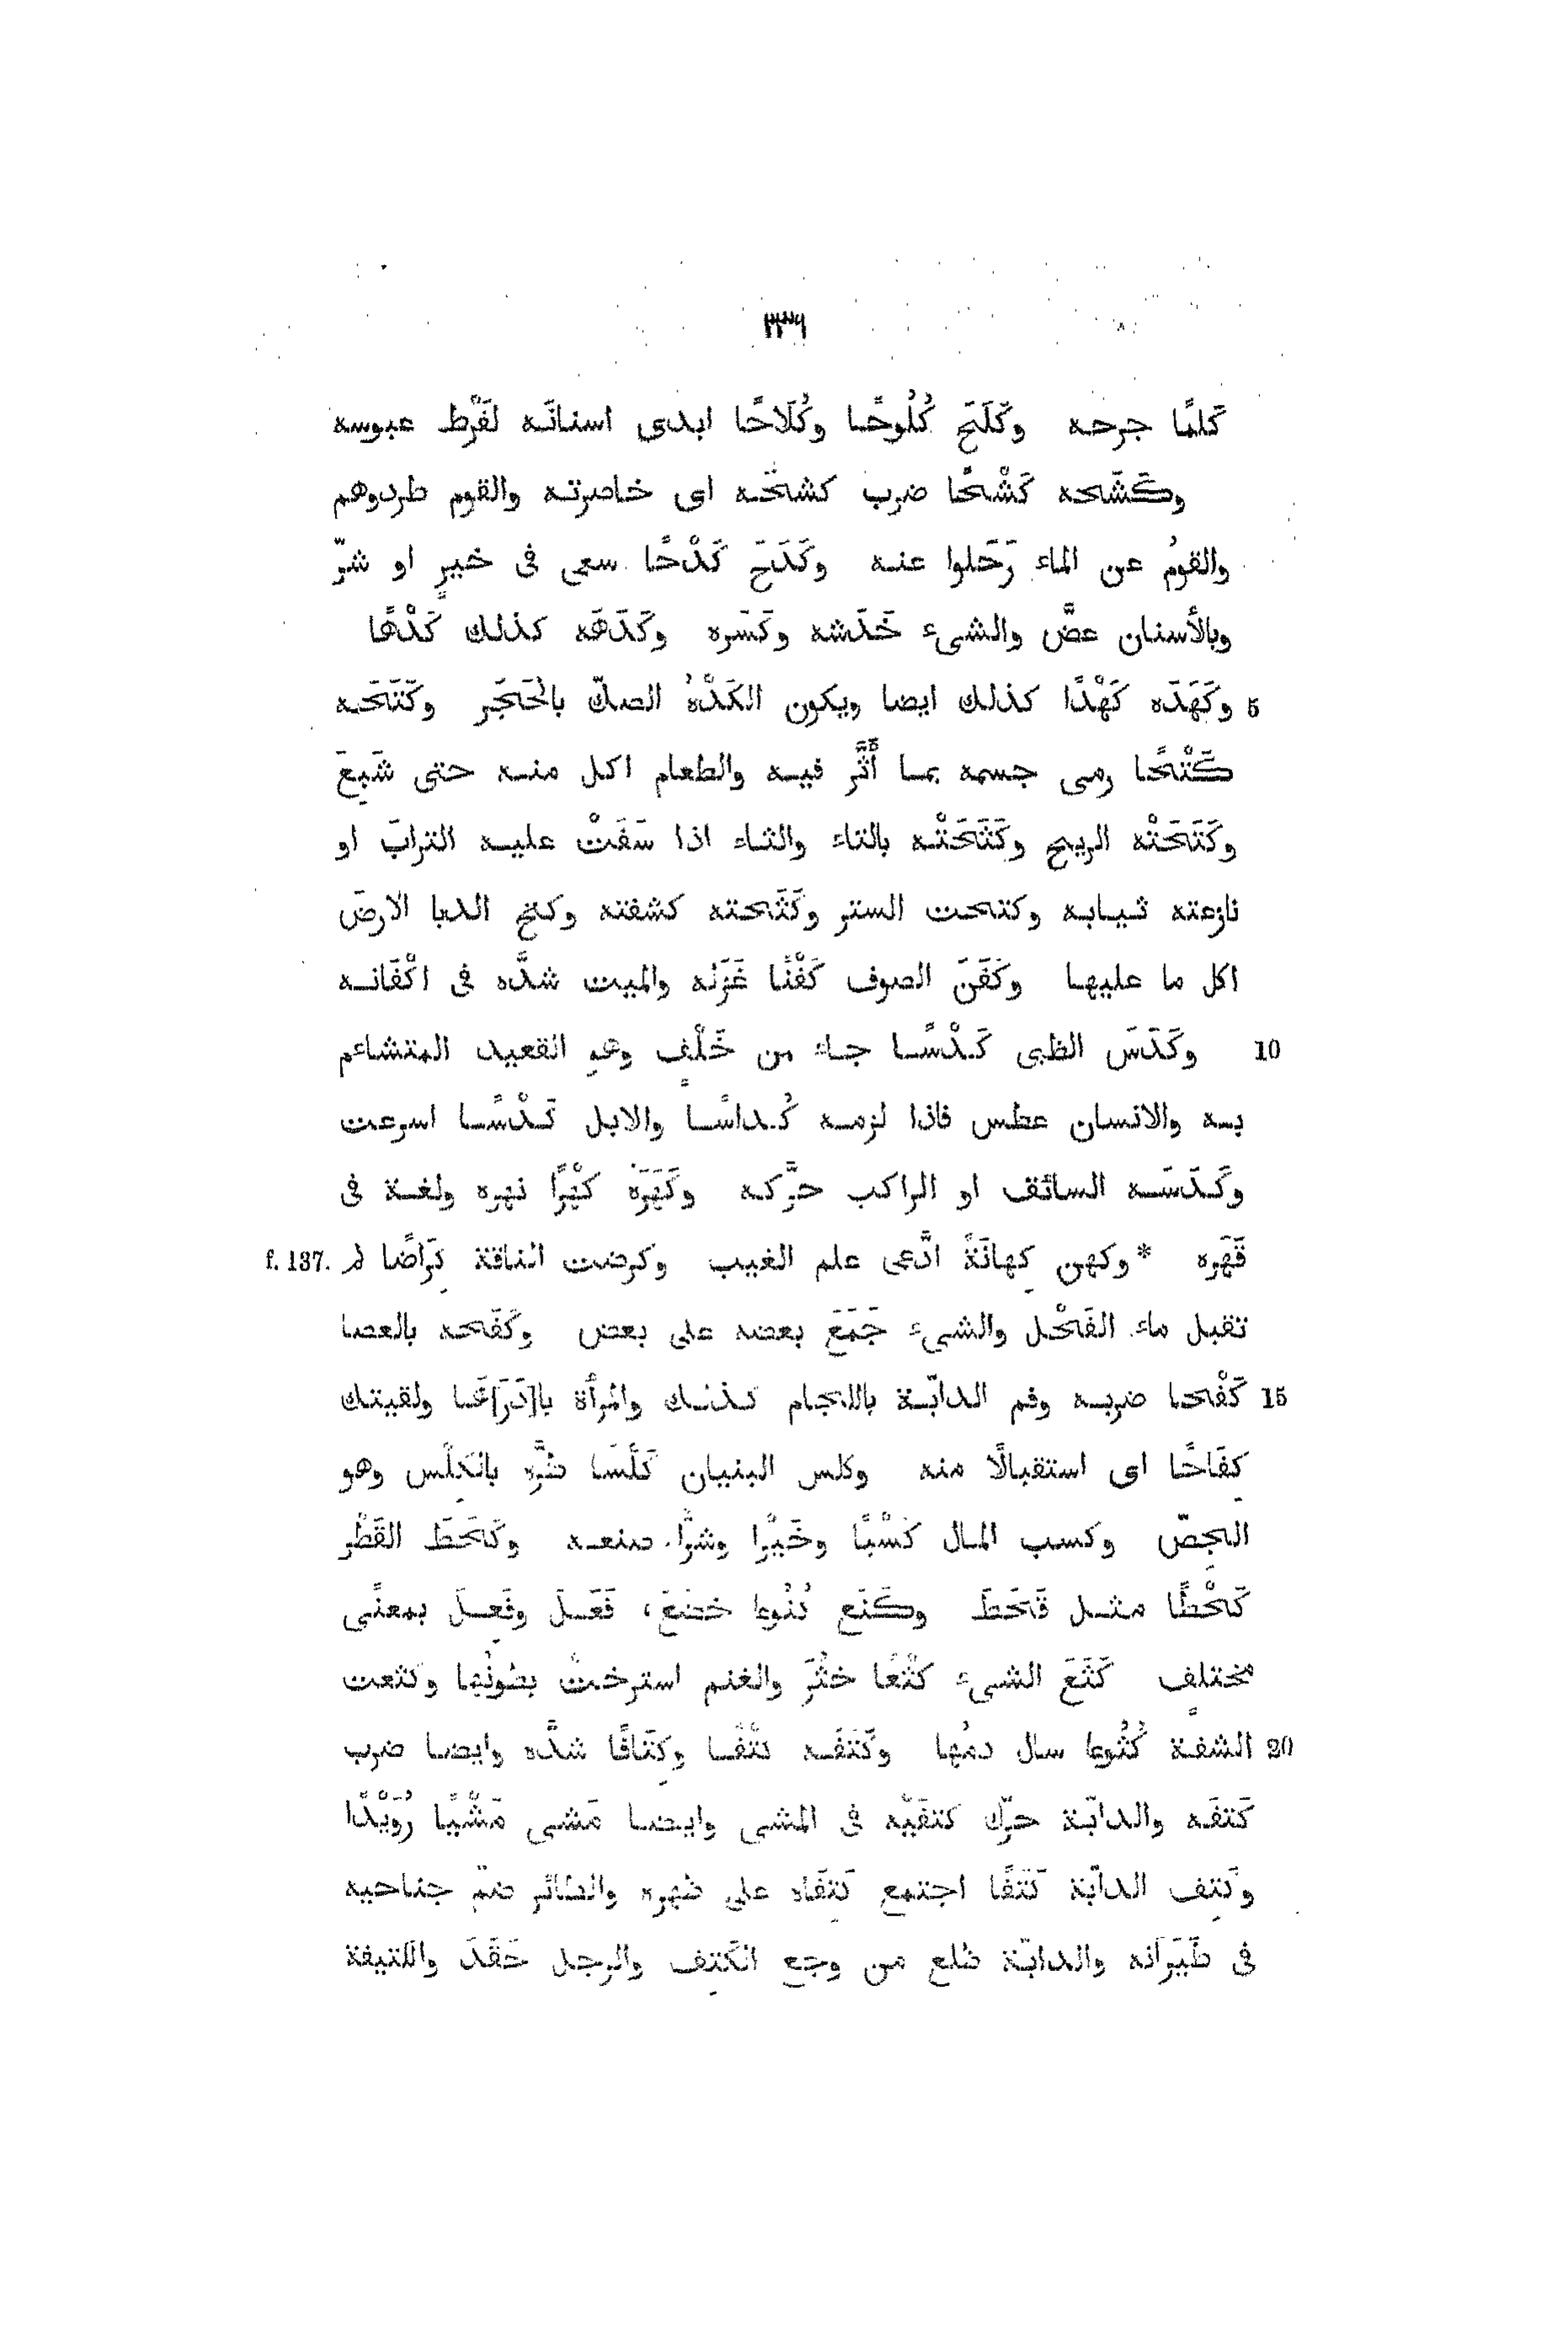 ٣٣٦
كَلمًا جرحه وكَلَحَ كُلُوحًا وكُلَاحًا ابدى اسنانَه لفَرْط عبوسه
وكَشَحه كَشْحًا ضرب كشحَه اى خاصرته والقوم طردوهم
والقومُ عن الماء رَحَلوا عنه وكَدَحَ كَدْحًا سعى فى خيرٍ او شرّ
وبالأسنان عضَّ والشىء خَدَشه وكَسَره وكَدَهَه كذلك كَدْهًا
5 وكَهَدَه كَهْدًا كذلك ايضا ويكون الكَدْهُ الصكّ بالحَجَر وكَتَحَه
كَتْحًا رمى جسمه بما أثَّر فيه والطعام اكل منه حتى شَبِعَ
وكَتَحَتْه الريح وكَثَحَتْه بالتاء والثاء اذا سَفَتْ عليه الترابَ او
نازعته ثيابه وكتحت الستر وكَثَحته كشفته وكتح الدبا الارضَ
اكل ما عليها وكَفَنَ الصوف كَفْنًا غَزَله والميت شدَّه فى اكْفَانه
10 وكَدَسَ الظبى كَدْسًا جاء من خَلْفٍ وهو القعيد المتشاءم
به والانسان عطس فاذا لزمه كُداسًا والابل كَدْسًا اسرعت
وكَدَسَه السائق او الراكب حرَّكه وكَهَرَهُ كَهْرًا نهره ولغة فى
قَهَره * وكهن كِهانَةً ادَّعى علم الغيب وكرضت الناقة كِرَاضًا لم f. 137.
تقبل ماء الفَحْل والشىء جَمَعَ بعضه على بعض وكَفَحه بالعصا
15 كَفْحا ضربه وفم الدابّة باللجام كذلك والمرأة با[دَرَ]هَا ولقيتك
كِفَاحًا اى استقبالًا منه وكلس البنيان كَلْسًا طَرَّه بالكِلْس وهو
الجِصّ وكسب المال كَسْبًا وخَيْرًا وشرًّا صنعه وكَحَطَ القَطْر
كَحْطًا مثل قَحَطَ وكَنَع كُنُوعا خضَعَ، فَعَلَ وفَعِلَ بمعنًى
مختلفٍ كَثَعَ الشىء كَثْعًا خثُرَ والغنم استرختْ بطونُها وكثعت
20 الشفة كُثُوعا سال دمُها وكَتَفَه كَتْفًا وكِتَافًا شدَّه وايضا ضرب
كَتفَه والدابّة حرّك كتفَيْه فى المشى وايضا مَشى مَشْيًا رُوَيْدًا
وكَتِف الدابّة كَتَفًا اجتمع كَتِفَاه على ظهره والطائر ضمّ جناحيه
فى طَيَرَانه والدابّة ظلع من وجع الكَتِف والرجل حَقَدَ والكتيفة